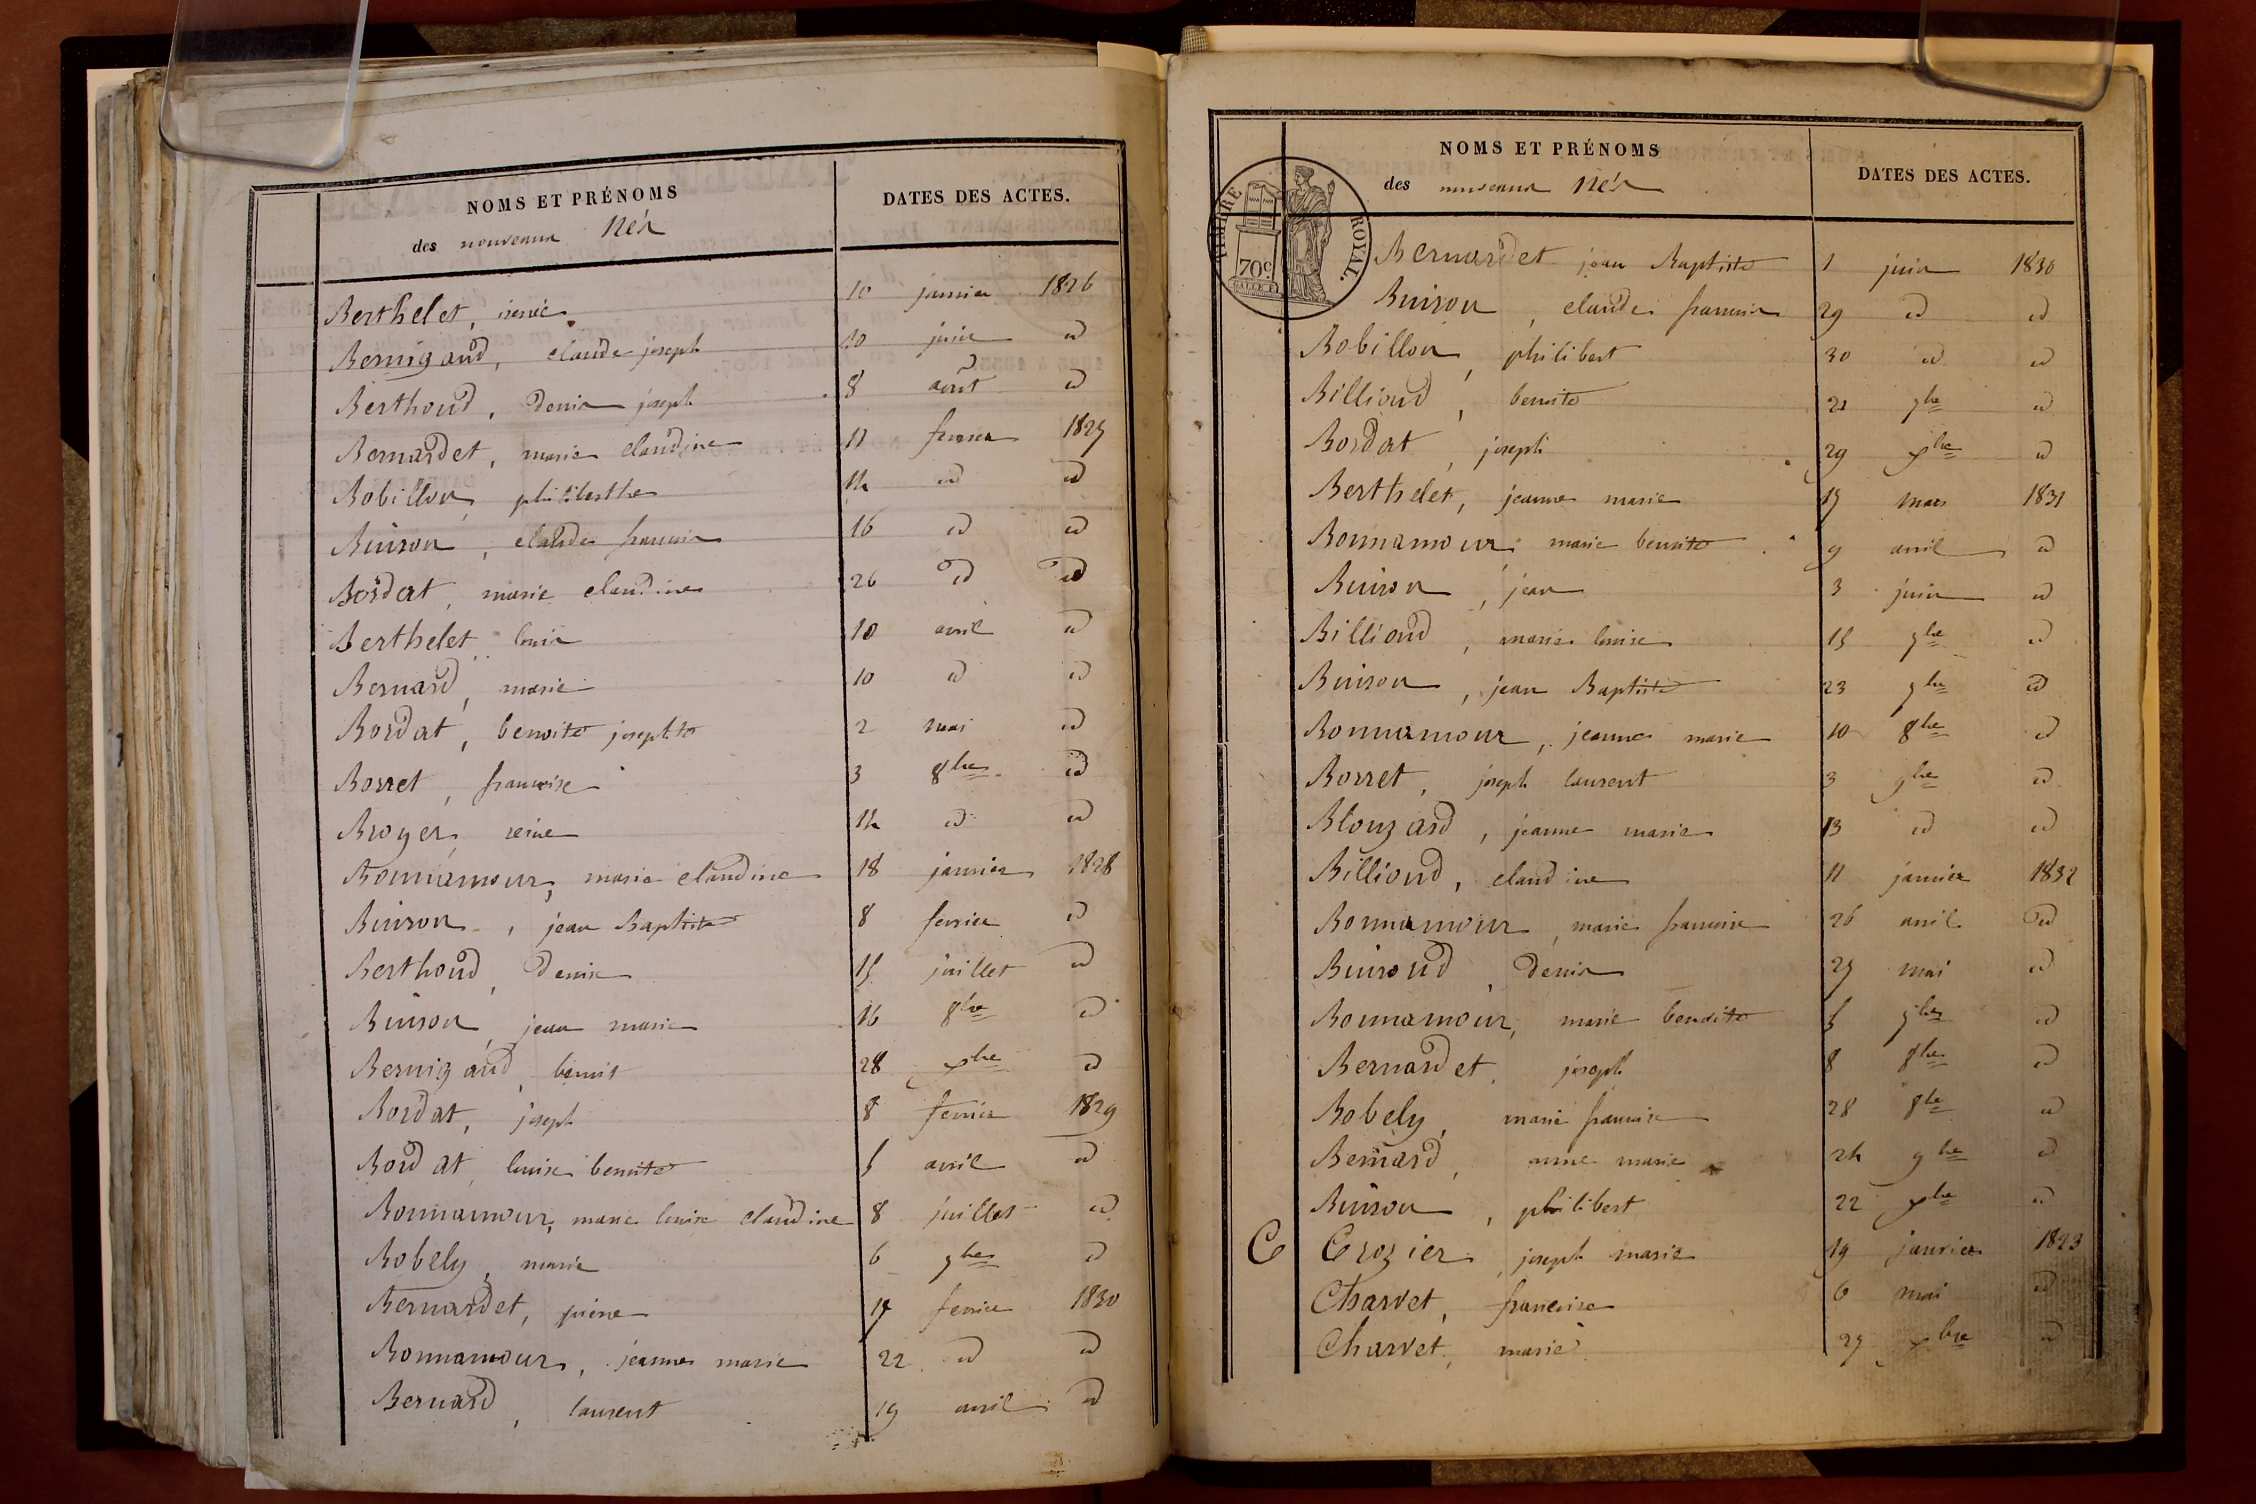 NOMS ET PRÉNOMS
des nouveaux Nés
DATES DES ACTES.
Berthelet, irené 10 janvier 1826
Bernigaud, claude joseph 10 juin id
Berthoud, Denis joseph 8 août id
Bernardet, marie claudine 11 fevrier 1827
Robillon, philiberthe 14 id id
Buison, claude francois 16 id id
Bordat, marie claudine 26 id id
Berthelet louis 10 avril id
Bernard, marie 10 id id
Bordat, benoite josephte 2 mai id
Borret, francoise 3 8bre id
Broyer, reine 14 id id
Bonnamour, marie claudine 18 janvier 1828
Buison, jean Baptiste 8 fevrier id
Berthoud, Denise 15 juillet id
Buison, jean marie 16 8bre id
Bernigaud, benoit 28 xbre id
Bordat, joseph 8 fevrier 1829
Bordat, louise benoite 5 avril id
Bonnamour, marie louise claudine 8 juillet id
Bobely, marie 6 9bre id
Bernardet, pierre 17 fevrier 1830
Bonnamour, jeanne marie 22 id id
Bernard, laurent 19 avril id
NOMS ET PRÉNOMS
des nouveaux Nés
DATES DES ACTES.
TIMBRE ROYAL.
70c.
Bernardet jean Baptiste 1 juin 1830
Buison, claude francois 29 id id
Bobillon, philibert 30 id id
Billioud, benoite 21 7bre id
Bordat, joseph 29 xbre id
Berthelet, jeanne marie 17 mars 1831
Bonnamour, marie benoite 9 avril id
Buison, jean 3 juin id
Billioud, marie louise 15 7bre id
Buison, jean Baptiste 23 7bre id
Bonnamour, jeanne marie 10 8bre id
Borret, joseph laurent 3 9bre id
Blouzard, jeanne marie 13 id id
Billioud, claudine 11 janvier 1832
Bonnamour, marie francoise 26 avril id
Buisoud, Denis 27 mai id
Bonnamour, marie benoite 5 7bre id
Bernardet, joseph 8 8bre id
Bobely, marie francoise 28 8bre id
Bernard, anne marie 24 9bre id
Buison, philibert 22 xbre id
C Crozier, joseph marie 19 janvier 1823
Charvet, francoise 6 mai id
Charvet, marie 27 xbre id